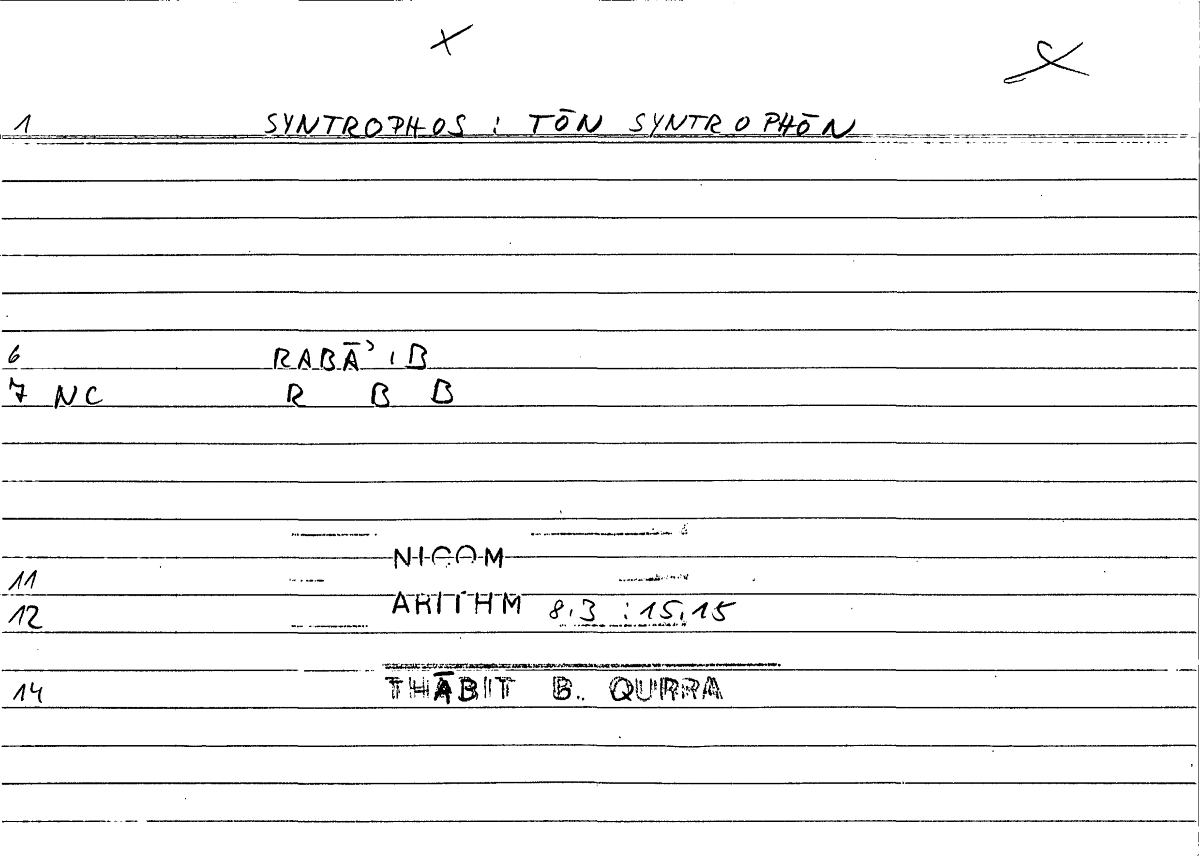 1 SYNTROPHOS : TŌN SYNTROPHŌN
6 RABĀʾIB
7 NC R B B
11 NICOM
12 ARITHM 8,3 : 15,15
14 THĀBIT B. QURRA